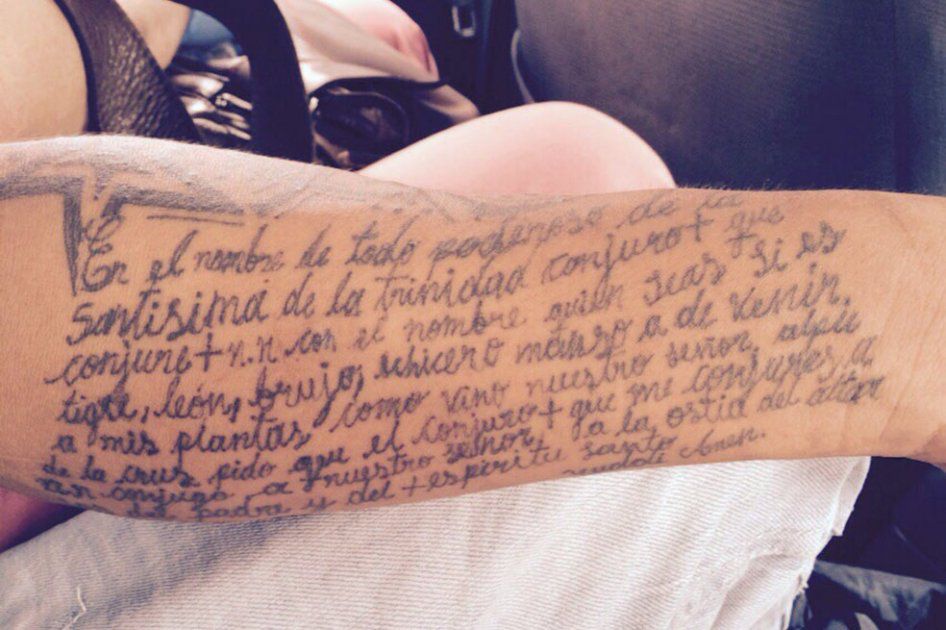 En el nombre de todo poderoso de la
santisima de la trinidad conjuro+ que
conjure+ n.n. con el nombre quien seas + si es
tigre, león, brujo, uhicero manso a de venir,
a mis plantas como vino nuestro señor, alpie
de la crus pido que el conjuro+ que me conjures, a
n.n conjugo, a +nuestro señor, a la ostia del altar
del padre y del +espiritu santo Amen.